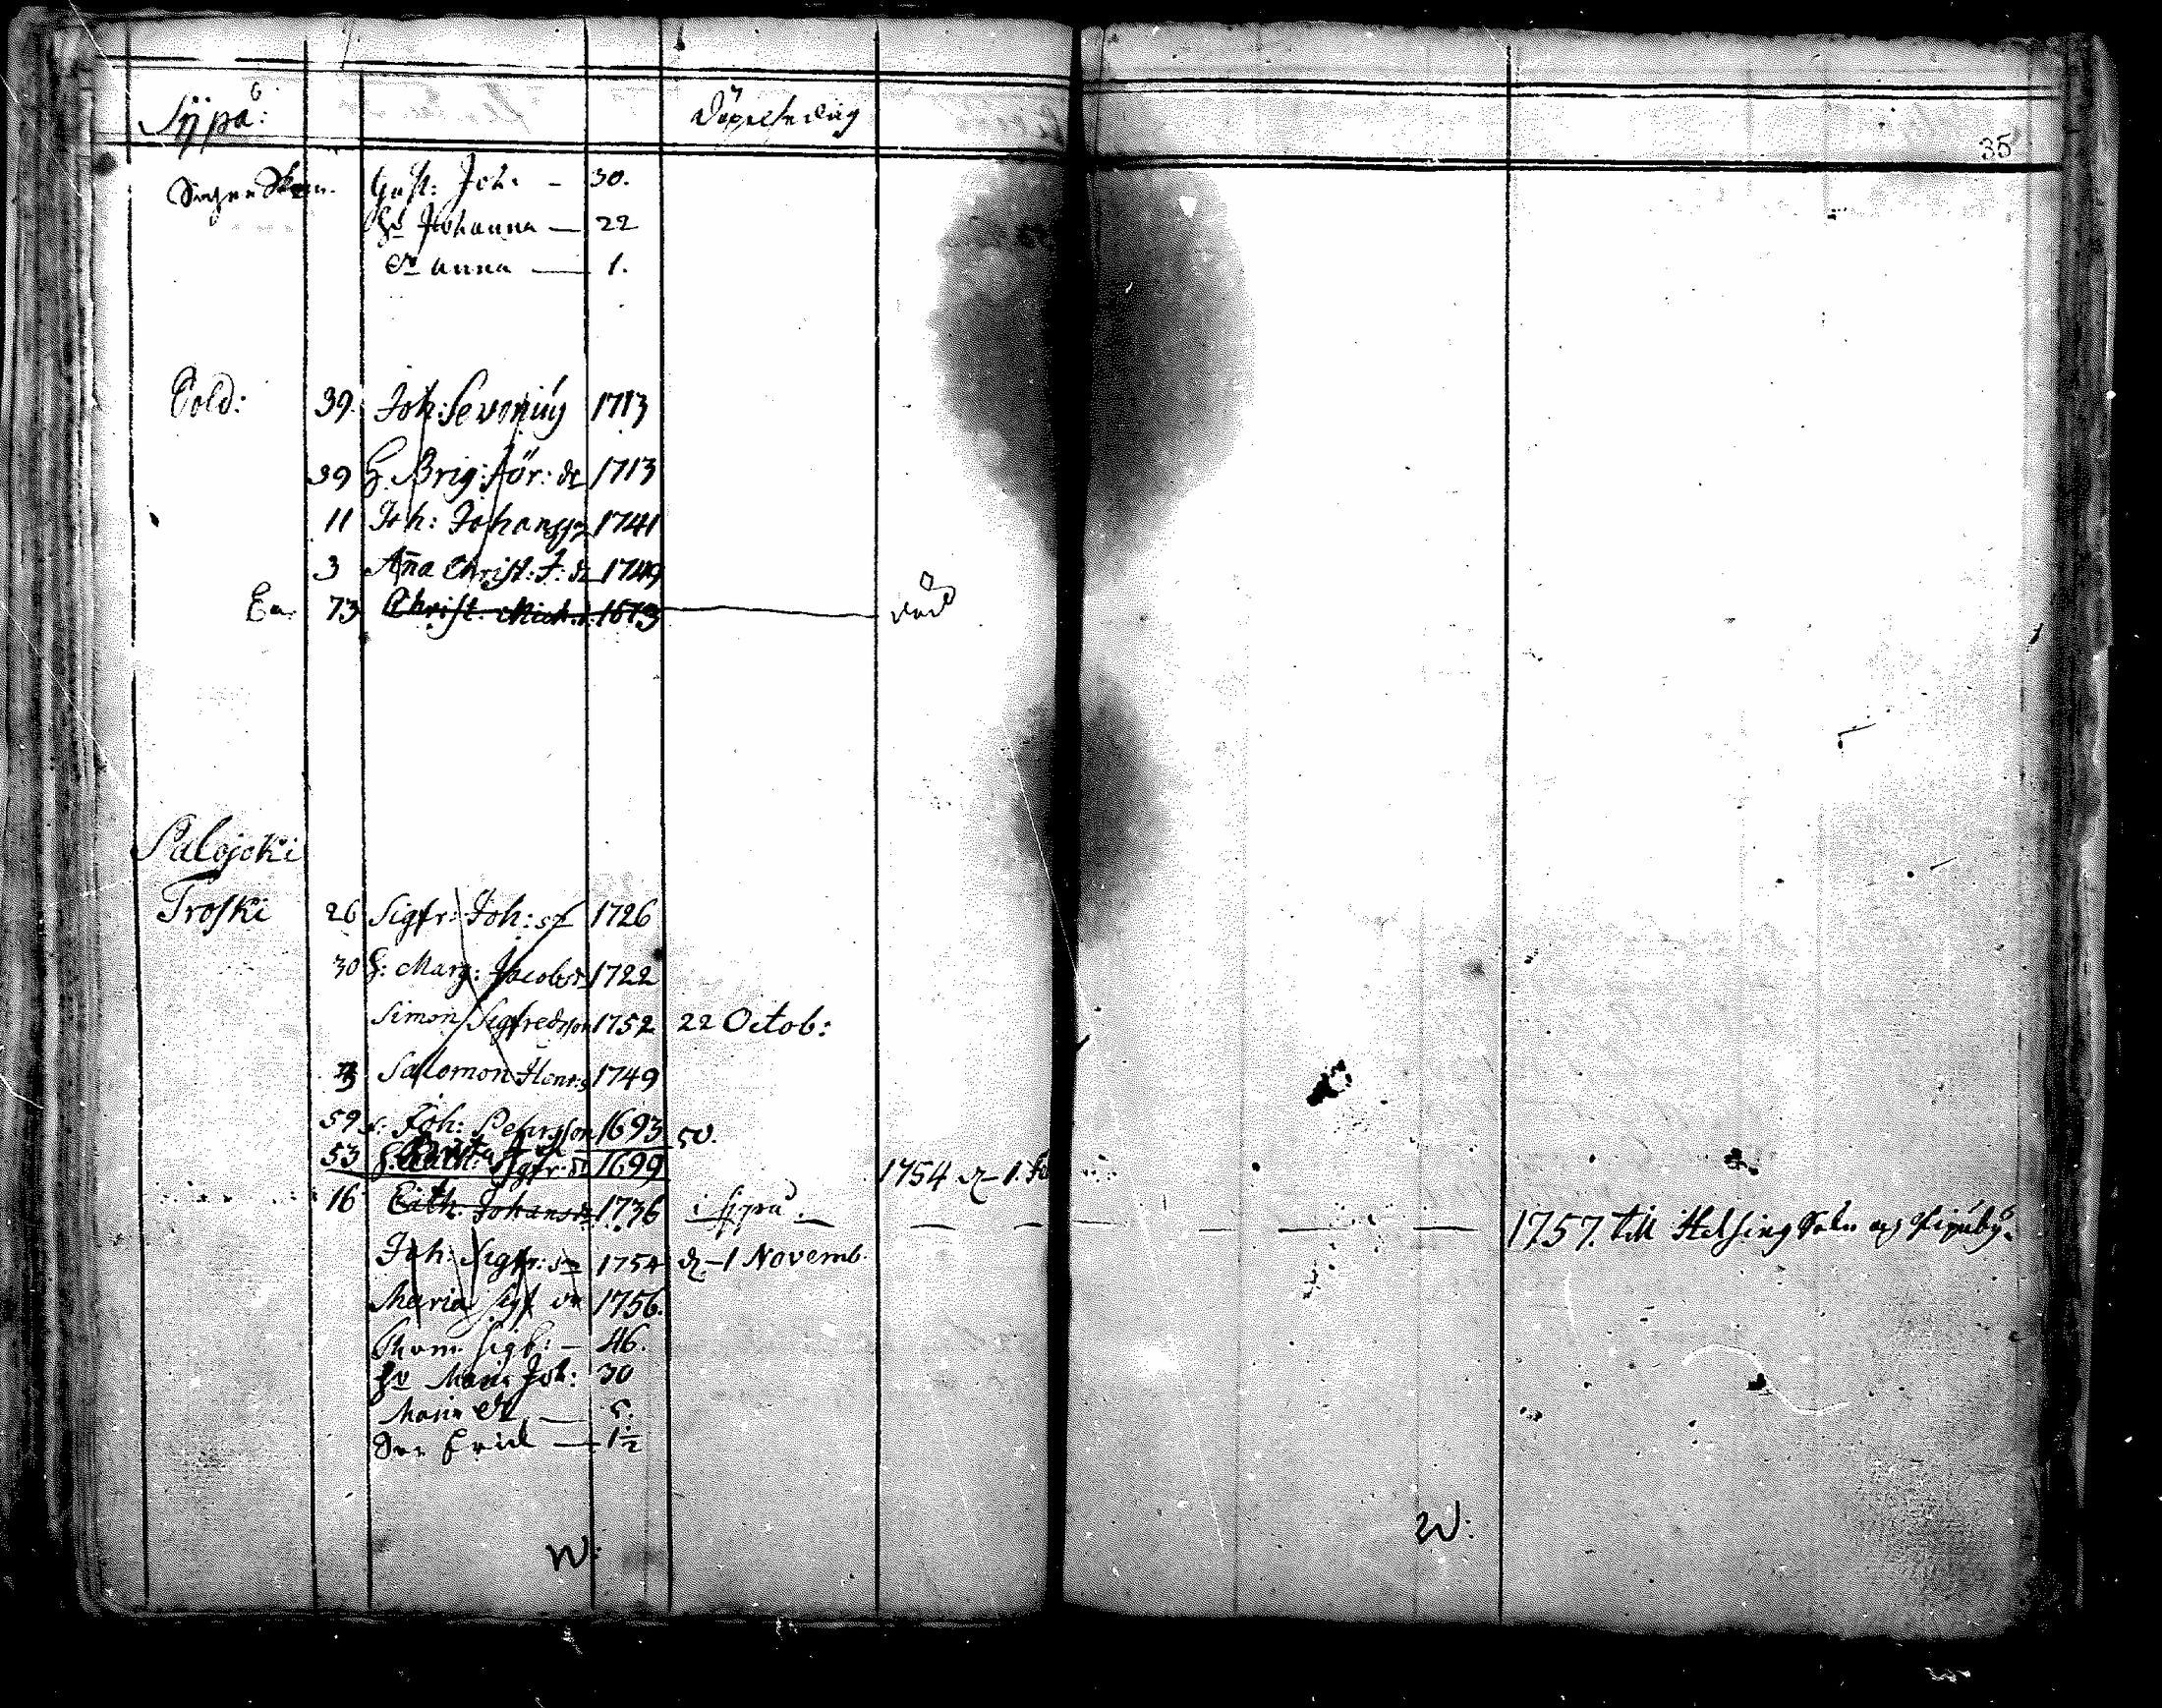 Sypå: Döpelsedag
35
Gust: Joh: – 30.
Hu Johanna — 22
Dr anna — 1.
Sold: 39. Joh: Sevonius 1713
39 H. Brig: Jör: dr 1713
11 Joh: Johanss: 1741
3 Aña Christ: J: dr 1749
En. 73 Christ: Mich. 1673 död
Palojoki
Troski 26 Sigfr: Joh: sn 1726
30 H: Marg: Jacobs dr 1722
Simon Sigfredsson 1752 22 Octob:
3 Salomon Henr: s 1749
59 Joh: Pehrsson 1693 50.
53 H. Sigfr: dr 1699 1754 d. 1.
16 Cath: Johans dr 1736 i Sypå. 1757. till Helsing Sokn
Joh: Sigfr: sn 1754 d. 1 Novemb.
Maria Sigf dr 1756.
Thom: Sigf: – 46.
Hu Maria Joh: 30
Maria dr — 5.
Son Erick — 1½
W:
W: